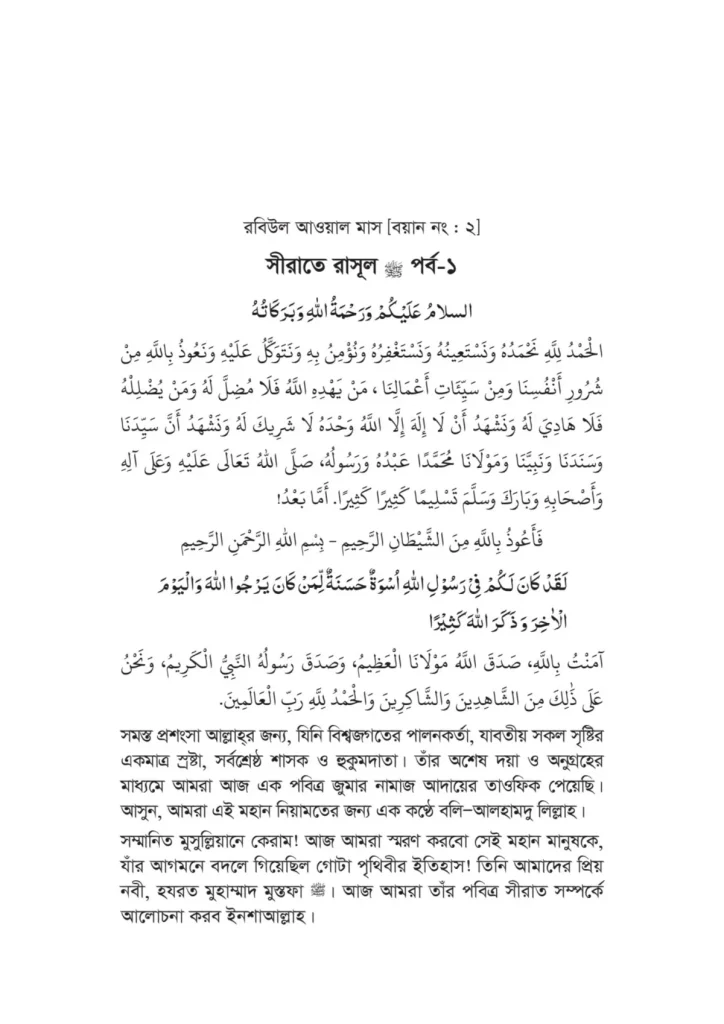 রবিউল আওয়াল মাস [বয়ান নং : ২]
সীরাতে রাসূল ﷺ পর্ব-১
السلامُ عَلَيْكُمْ وَرَحْمَةُ اللهِ وَبَرَكَاتُهُ
الْحَمْدُ لِلَّهِ نَحْمَدُهُ وَنَسْتَعِينُهُ وَنَسْتَغْفِرُهُ وَنُؤْمِنُ بِهِ وَنَتَوَكَّلُ عَلَيْهِ وَنَعُوذُ بِاللَّهِ مِنْ
شُرُورِ أَنْفُسِنَا وَمِنْ سَيِّئَاتِ أَعْمَالِنَا ، مَنْ يَهْدِهِ اللَّهُ فَلَا مُضِلَّ لَهُ وَمَنْ يُضْلِلْهُ
فَلَا هَادِيَ لَهُ وَنَشْهَدُ أَنْ لَا إِلَهَ إِلَّا اللَّهُ وَحْدَهُ لَا شَرِيكَ لَهُ وَنَشْهَدُ أَنَّ سَيِّدَنَا
وَسَنَدَنَا وَنَبِيَّنَا وَمَوْلَانَا مُحَمَّدًا عَبْدُهُ وَرَسُولُهُ، صَلَّى اللهُ تَعَالَى عَلَيْهِ وَعَلَى آلِهِ
وَأَصْحَابِهِ وَبَارَكَ وَسَلَّمَ تَسْلِيمًا كَثِيرًا كَثِيرًا. أَمَّا بَعْدُ!
فَأَعُوذُ بِاللَّهِ مِنَ الشَّيْطَانِ الرَّجِيمِ - بِسْمِ اللهِ الرَّحْمَنِ الرَّحِيمِ
لَقَدْ كَانَ لَكُمْ فِيْ رَسُوْلِ اللهِ اُسْوَةٌ حَسَنَةٌ لِّمَنْ كَانَ يَرْجُوا اللهَ وَالْيَوْمَ
الْاٰخِرَ وَ ذَكَرَ اللهَ كَثِيْرًا
آمَنْتُ بِاللَّهِ، صَدَقَ اللَّهُ مَوْلَانَا الْعَظِيمُ، وَصَدَقَ رَسُولُهُ النَّبِيُّ الْكَرِيمُ، وَنَحْنُ
عَلَى ذَلِكَ مِنَ الشَّاهِدِينَ وَالشَّاكِرِينَ وَالْحَمْدُ لِلَّهِ رَبِّ الْعَالَمِينَ.
সমস্ত প্রশংসা আল্লাহ্‌র জন্য, যিনি বিশ্বজগতের পালনকর্তা, যাবতীয় সকল সৃষ্টির
একমাত্র স্রষ্টা, সর্বশ্রেষ্ঠ শাসক ও হুকুমদাতা। তাঁর অশেষ দয়া ও অনুগ্রহের
মাধ্যমে আমরা আজ এক পবিত্র জুমার নামাজ আদায়ের তাওফিক পেয়েছি।
আসুন, আমরা এই মহান নিয়ামতের জন্য এক কণ্ঠে বলি–আলহামদু লিল্লাহ।
সম্মানিত মুসুল্লিয়ানে কেরাম! আজ আমরা স্মরণ করবো সেই মহান মানুষকে,
যাঁর আগমনে বদলে গিয়েছিল গোটা পৃথিবীর ইতিহাস! তিনি আমাদের প্রিয়
নবী, হযরত মুহাম্মাদ মুস্তফা ﷺ। আজ আমরা তাঁর পবিত্র সীরাত সম্পর্কে
আলোচনা করব ইনশাআল্লাহ।